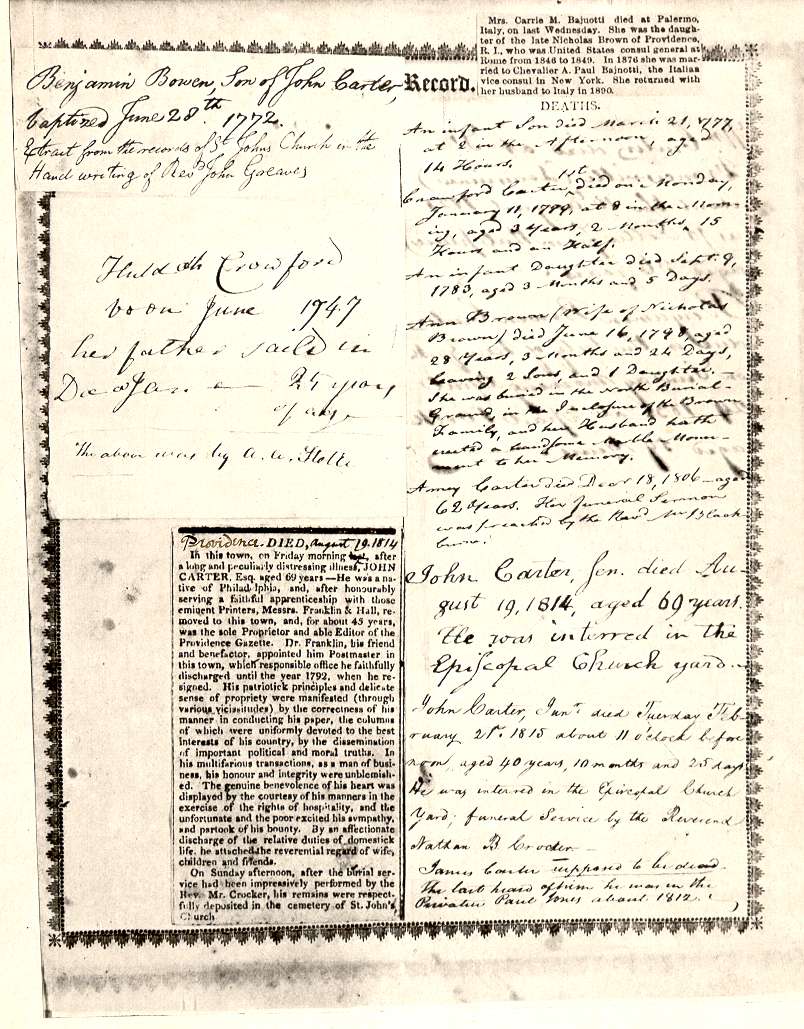 Mrs. Carrie M. Bajnotti died at Palermo,
Italy, on last Wednesday. She was the daugh-
ter of the late Nicholas Brown of Providence,
R. I., who was United States consul general at
Rome from 1846 to 1849. In 1876 she was mar-
ried to Chevalier A. Paul Bajnotti, the Italian
vice consul in New York. She returned with
her husband to Italy in 1890.
Benjamin Bowen, Son of John Carter,
baptized June 28th. 1772.
Extract from the records of St Johns Church in the
Hand writing of Revd John Greaves
Huldah Crawford
born June 1747
her father sail'd in
Dec or Jan 25 years
of age
The above was by A. W.
Providence. DIED, August 19. 1814
In this town, on Friday morning last, after
a long and peculiarly distressing illness, JOHN
CARTER, Esq. aged 69 years—He was a na-
tive of Philadelphia, and, after honourably
serving a faithful apprenticeship with those
eminent Printers, Messrs. Franklin & Hall, re-
moved to this town, and, for about 45 years,
was the sole Proprietor and able Editor of the
Providence Gazette. Dr. Franklin, his friend
and benefactor, appointed him Postmaster in
this town, which responsible office he faithfully
discharged until the year 1792, when he re-
signed. His patriotick principles and delicate
sense of propriety were manifested (through
various vicissitudes) by the correctness of his
manner in conducting his paper, the columns
of which were uniformly devoted to the best
interests of his country, by the dissemination
of important political and moral truths. In
his multifarious transactions, as a man of busi-
ness, his honour and integrity were unblemish-
ed. The genuine benevolence of his heart was
displayed by the courtesy of his manners in the
exercise of the rights of hospitality, and the
unfortunate and the poor excited his sympathy,
and partook of his bounty. By an affectionate
discharge of the relative duties of domestick
life, he attached the reverential regard of wife,
children and friends.
On Sunday afternoon, after the burial ser-
vice had been impressively performed by the
Rev. Mr. Crocker, his remains were respect-
fully deposited in the cemetery of St. John's
Church
Record.
DEATHS.
An infant Son died March 21, 1777,
at 2 in the Afternoon, aged
14 Hours.
1st
Crawford Carter, died on Monday,
January 11, 1779, at 8 in the Morn-
ing, aged 3 Years, 2 Months, 15
Hours and an Half.
An infant Daughter died Sept. 9,
1783, aged 3 Months and 5 Days.
Ann Brown (Wife of Nicholas
Brown) died June 16, 1798, aged
28 Years, 3 Months and 24 Days,
leaving 2 Sons, and 1 Daughter.—
She was buried in the North Burial-
Ground, in the Inclosure of the Brown
Family, and her Husband hath
erected a handsome Marble Monu-
ment to her Memory.
Amey Carter died Decr 18, 1806—aged
62 Years. Her funeral Sermon
was preached by the Revd Mr Black-
burn.
John Carter, Sen. died Au-
gust 19, 1814, aged 69 years.
He was interred in the
Episcopal Church yard.—
John Carter, Junr. died Tuesday Feb-
ruary 21st. 1815 about 11 o'clock before
noon, aged 40 years, 10 months and 25 days
He was interred in the Episcopal Church
Yard; funeral Service by the Reverend
Nathan B Crocker—
James Carter supposed to be dead
the last heard of him he was in the
Privateer Paul Jones about 1812.